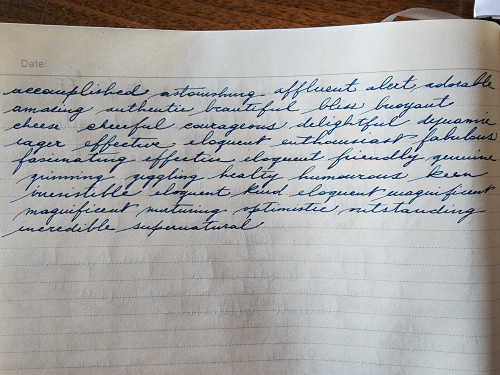 Date:
accomplished astonishing affluent alert adorable
amazing authentic beautiful bless buoyant
cheese cheerful courageous delightful dynamic
eager effective eloquent enthousiast fabulous
fascinating effective eloquent friendly genuine
grinning giggling healty humourous keen
irresistible eloquent kind eloquent magnificent
magnificent maturing optimistic outstanding
incredible supernatural